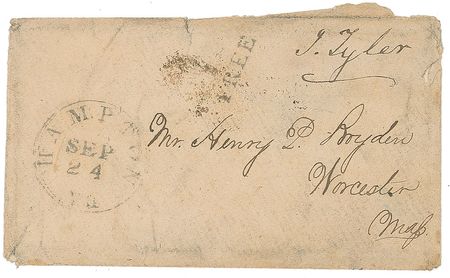 J. Tyler
FREE
HAMPTON
SEP
24
Va
Mr. Henry P. Boyden
Worcester
Mass